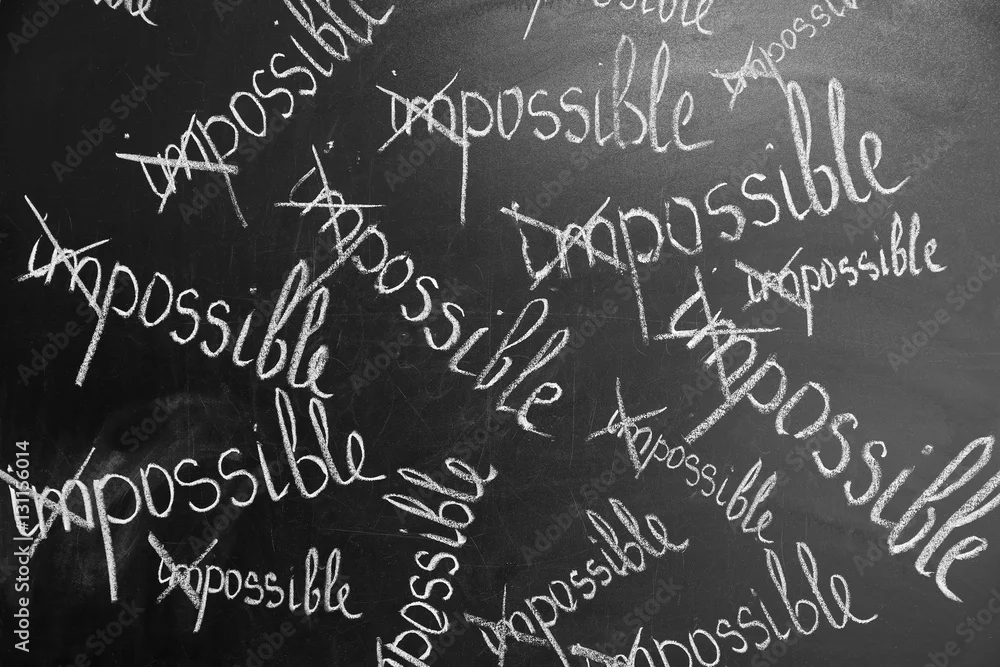 impossible
impossible
impossible
impossible
impossible
impossible
impossible
impossible
impossible
impossible
impossible
possible
impossible
impossible
Adobe Stock | #131156014